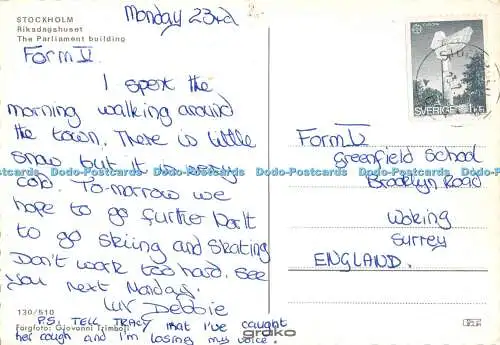 STOCKHOLM
Riksdagshuset
The Parliament building
Monday 23rd
Form V
I spent the
morning walking around
the town. There is little
snow but it is very
cold. To-morrow we
hope to go further North
to go skiing and skating
Don't work too hard. see
you next Monday.
luv Debbie
P.S. TELL TRACY that I've caught
her cough and I'm losing my voice!
130/510
Fargfoto: Giovanni Trimboli
grako
EUROPA
SVERIGE
Form V
Greenfield School
Brooklyn Road
Woking
Surrey
ENGLAND.
Dodo-Postcards Dodo-Postcards Dodo-Postcards Dodo-Postcards Dodo-Postcards